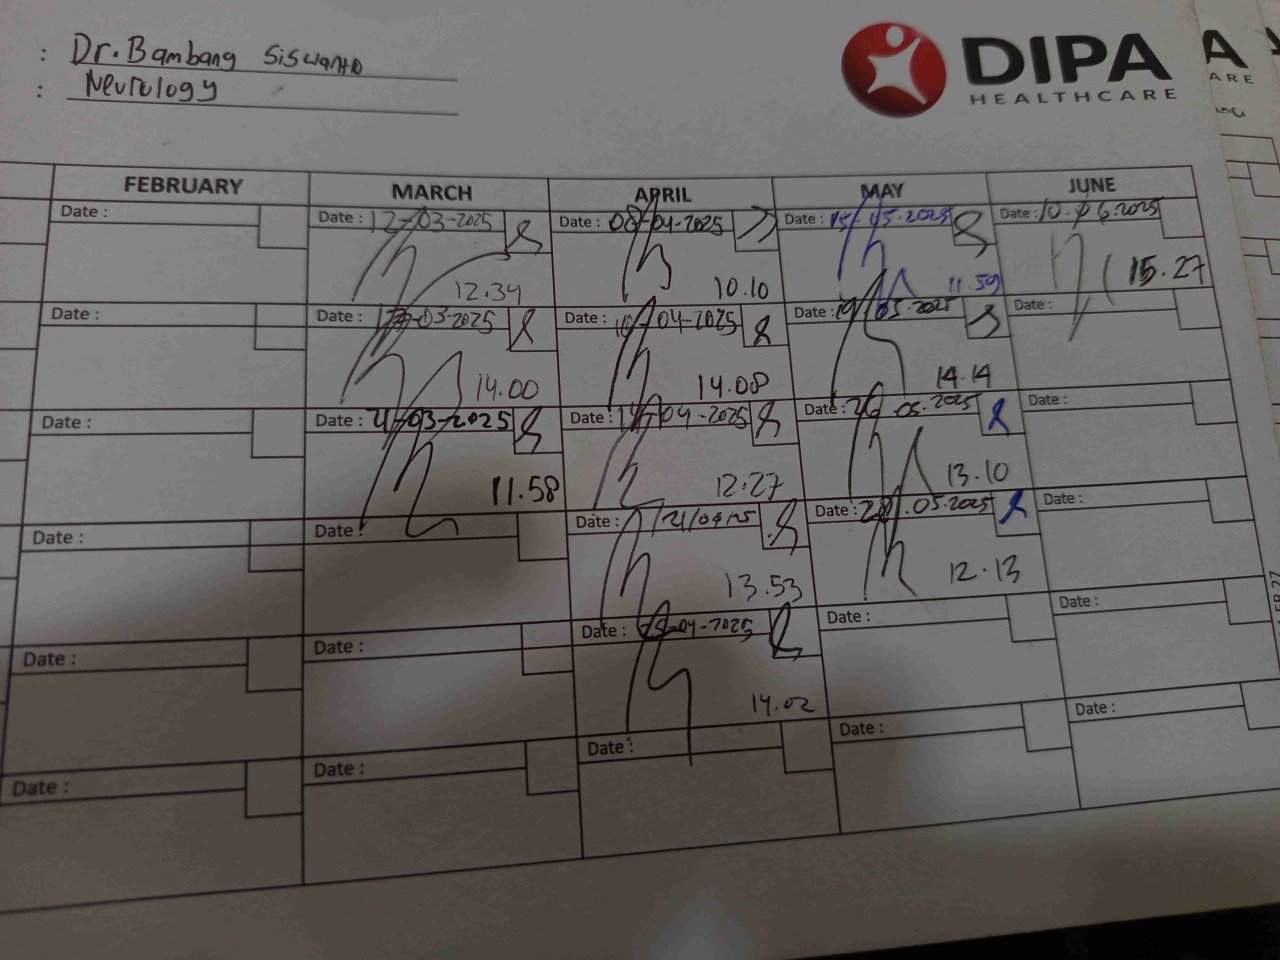 : Dr. Bambang Siswanto
: Neurology
DIPA
HEALTHCARE
A
ARE
FEBRUARY MARCH APRIL MAY JUNE
Date : Date : 12-03-2025 Date : 08-04-2025 Date : 15-05-2025 Date : 10.06.2025
12.34 10.10 11.59 15.27
Date : Date : -03-2025 Date : -04-2025 Date : 19/05.2025 Date :
14.00 14.08 14.14
Date : Date : 21-03-2025 Date : 14-04-2025 Date : 26.05.2025 Date :
11.58 12.27 13.10
Date : Date : Date : 21/04/25 Date : 28.05.2025 Date :
13.53 12.13
Date : Date : Date : 25-04-2025 Date : Date :
14.02
Date : Date : Date : Date : Date :